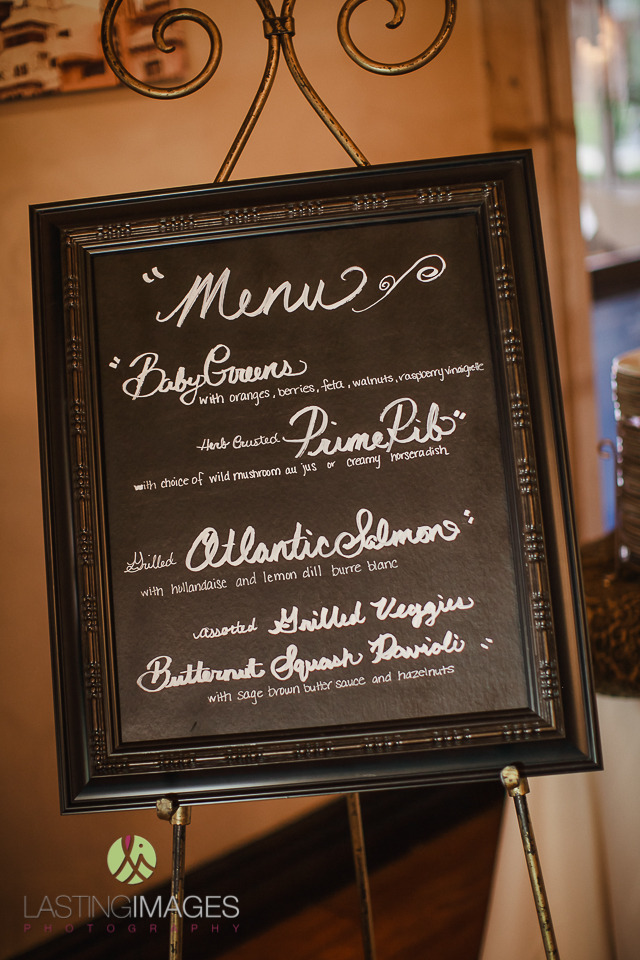 "Menu
"Baby Greens
with oranges, berries, feta, walnuts, raspberry vinaigrette
Herb Crusted Prime Rib"
with choice of wild mushroom au jus or creamy horseradish
Grilled Atlantic Salmon"
with hollandaise and lemon dill burre blanc
assorted Grilled Veggies
Butternut Squash Ravioli "
with sage brown butter sauce and hazelnuts
LASTINGIMAGES
PHOTOGRAPHY